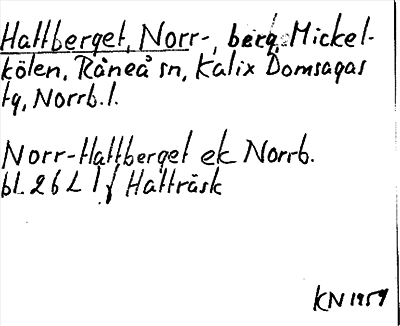 Hattberget, Norr-, berg, Mickel-
kölen, Råneå sn, Kalix Domsagas
tg, Norrb. l.
Norr-Hattberget ek Norrb.
bl. 26 L l f Hatträsk
KN 1959